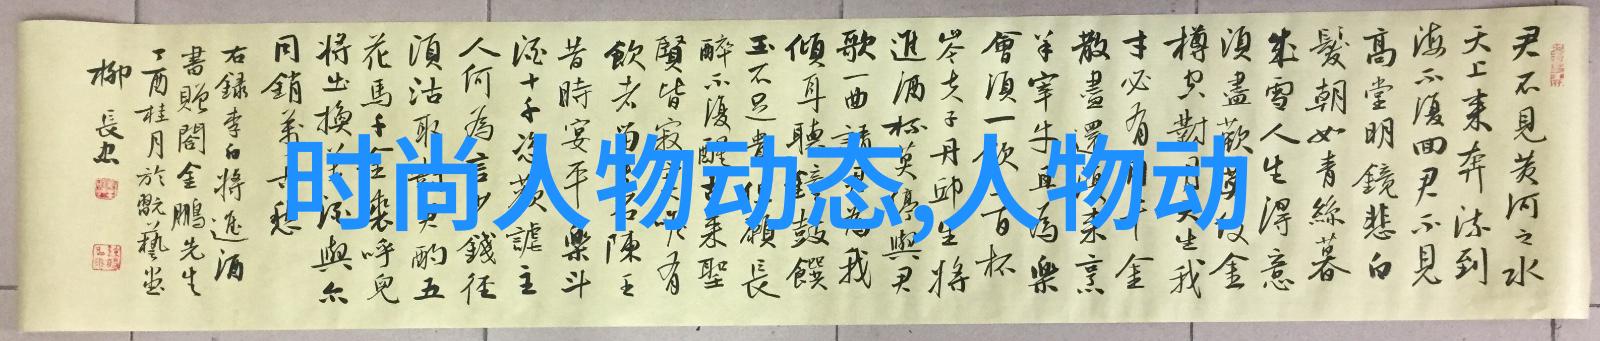 君不見黃河之水
天上來奔流到
海不復回君不見
高堂明鏡悲白
髮朝如青絲暮
成雪人生得意
須盡歡莫使金
樽空對月天生我
才必有用千金
散盡還復來烹
羊宰牛且為樂
會須一飲三百杯
岑夫子丹邱生將
進酒杯莫停與君
歌一曲請君為我
傾耳聽鐘鼓饌
玉不足貴但願長
醉不復醒古來聖
賢皆寂寞唯有
飲者留其名陳王
昔時宴平樂斗
酒十千恣歡謔主
人何為言少錢徑
須沽取對君酌五
花馬千金裘呼兒
將出換美酒與尔
同銷萬古愁
右錄李白將進酒
書贈閻金鵬先生
丁酉桂月於翫藝堂
柳長忠
时尚人物动态,人物动